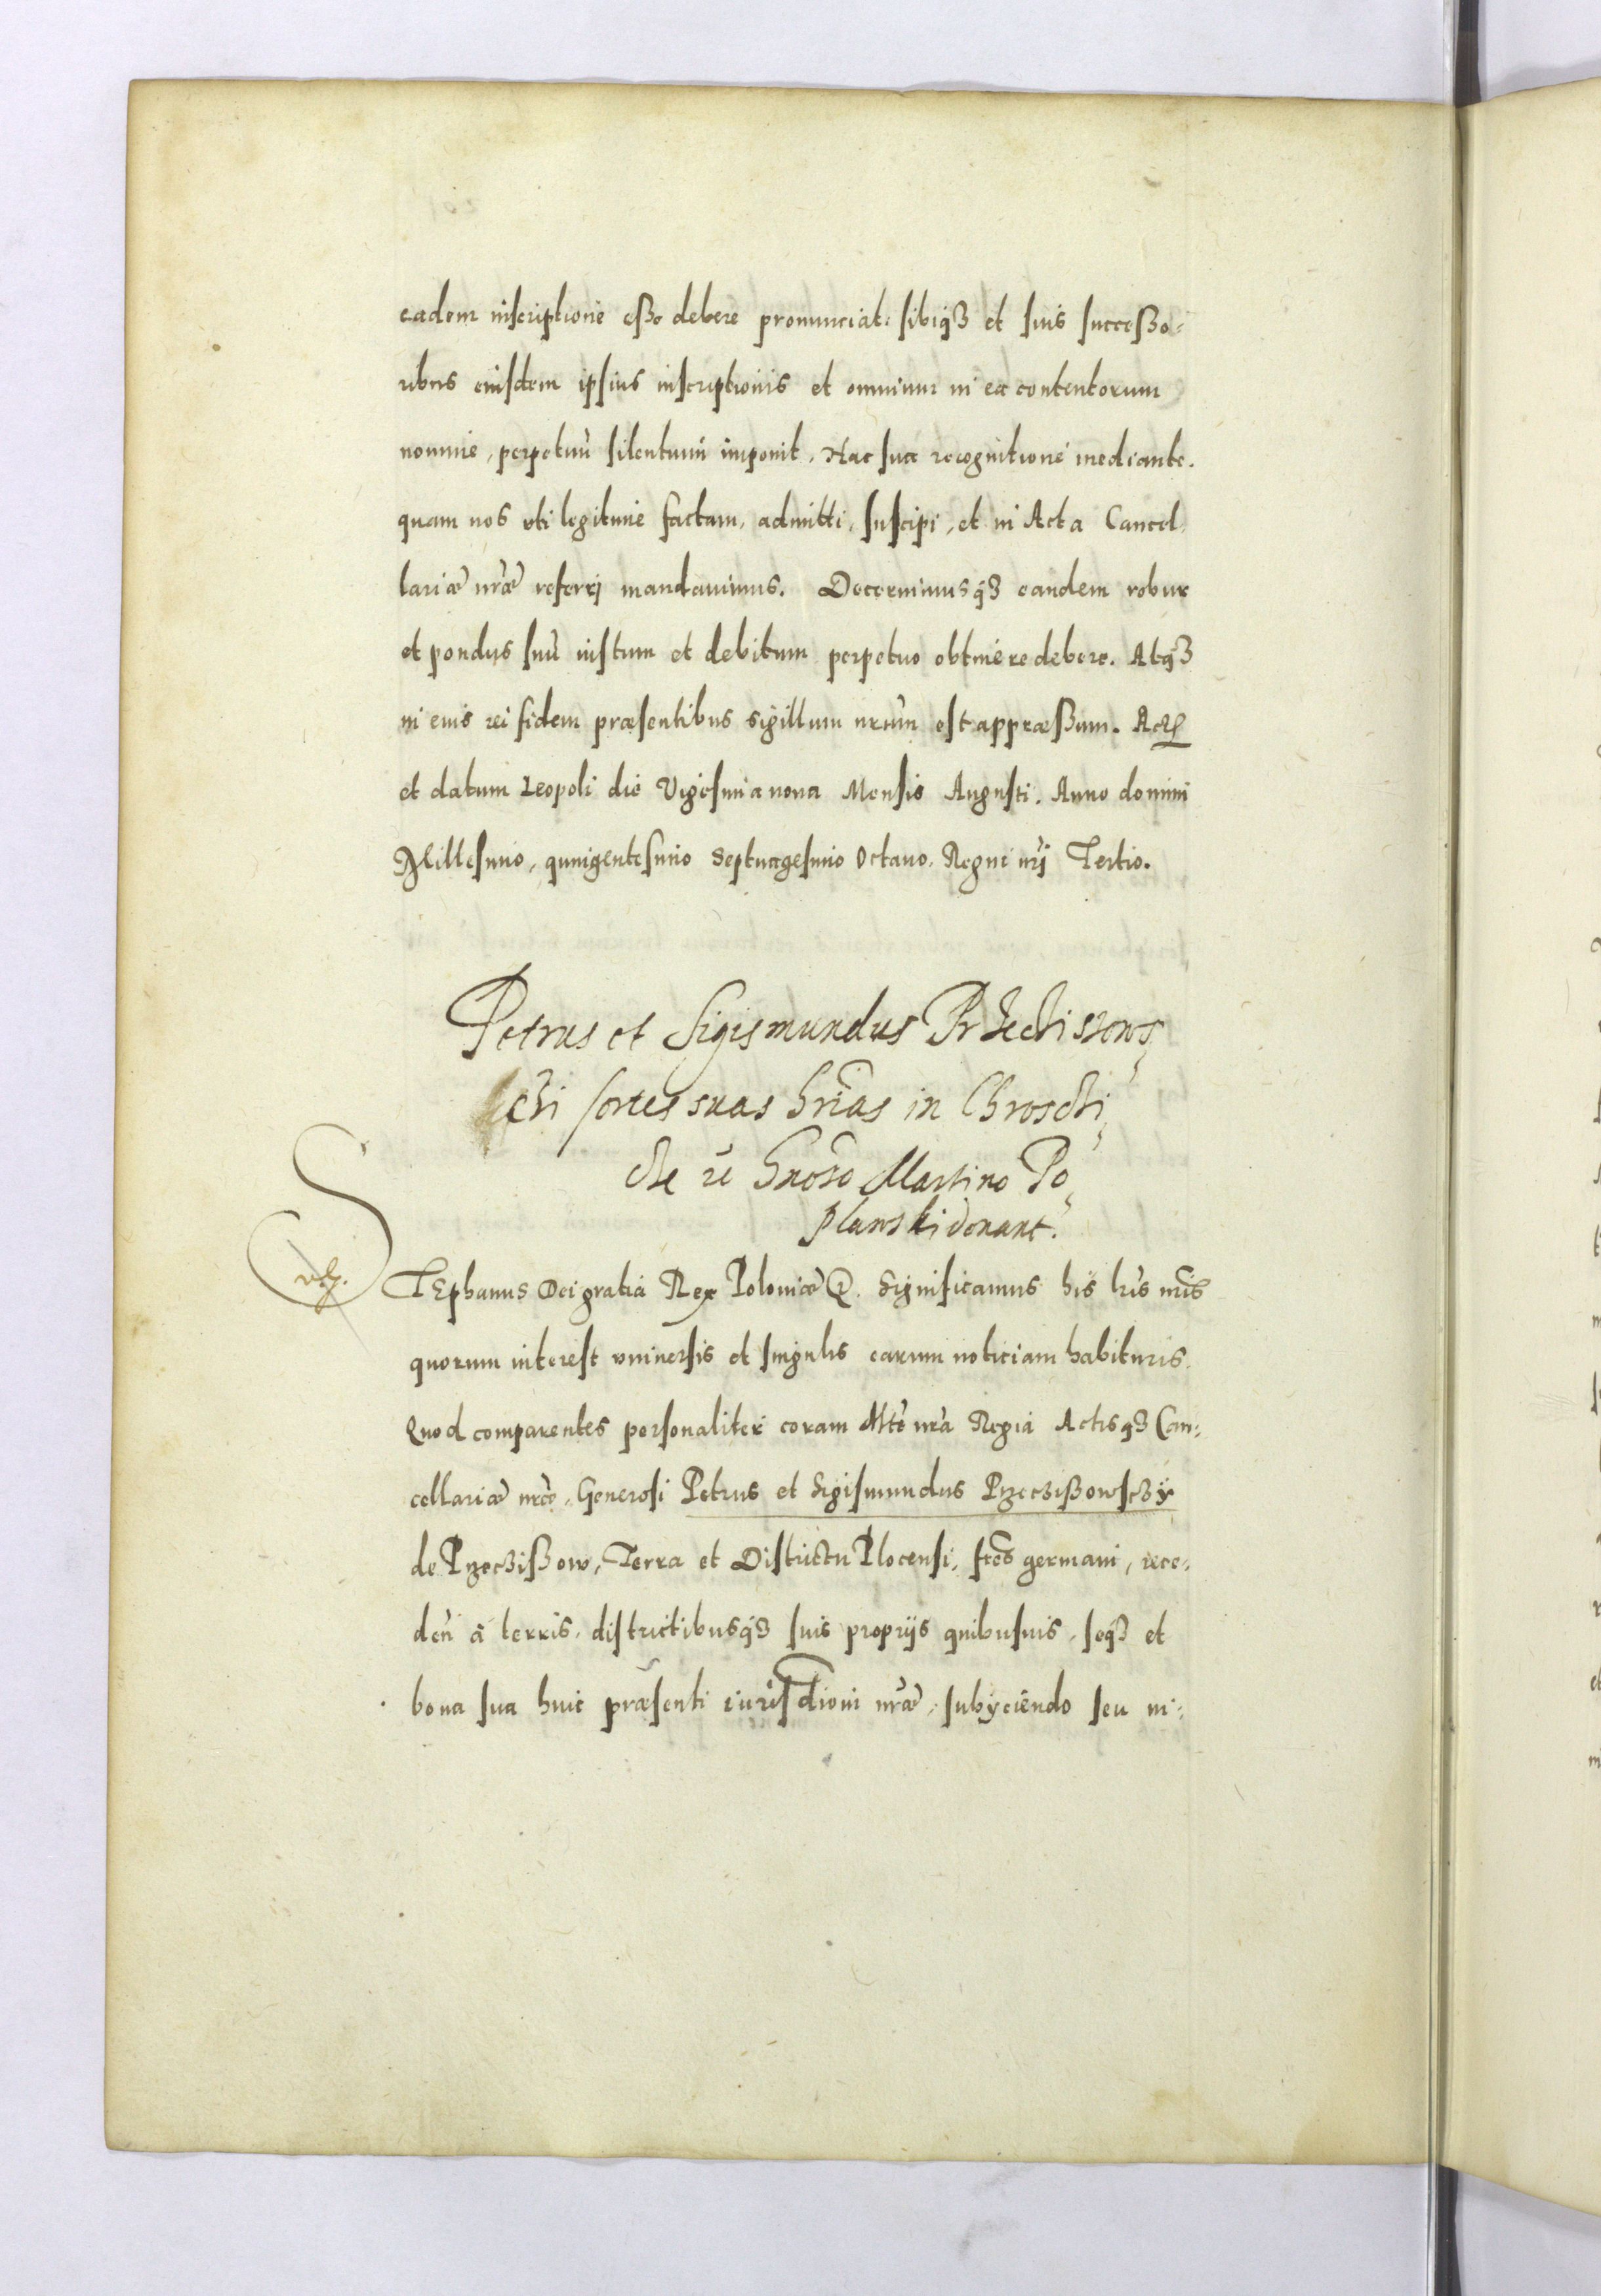 eadem inscriptione eße debere pronunciat. sibiqȝ et suis succeßo-
ribus eiusdem ipsius inscriptionis et omnium in ea contentorum
nomine, perpetuũ silentium imponit. Hac sua recognitione mediante.
quam nos uti legitime factam, admitti, suscipi, et in Acta Cancel-
lariæ nr̃æ referri mandavimus. Decernimusqȝ eandem robur
et pondus suũ iustum et debitum perpetuo obtinere debere. Atqȝ
in eius rei fidem præsentibus sigillum nr̃um est appræßum. Act̃
et datum Leopoli die Vigesima nona Mensis Augusti. Anno domini
Millesimo, quingentesimo Septuagesimo Octavo. Regni nr̃i Tertio.
Petrus et Sigismundus
sortes suas hr̃ias in
Martino Po-
plawski donant.
STEphanus Dei gratia Rex Poloniæ &. Significamus his lr̃is nr̃is
quorum interest universis et singulis earum noticiam habituris.
Quod comparentes personaliter coram Mtẽ nr̃a Regia Actisqȝ Can-
cellariæ nr̃æ. Generosi Petrus et Sigismundus Przeczißowsczy
de Przeczißow, Terra et Districtu Plocensi, fr̃es germani, rece-
deñ à terris, districtibusqȝ suis proprijs quibusuis, seqȝ et
bona sua huic præsenti iurisdictioni nr̃æ, subyciendo seu in-